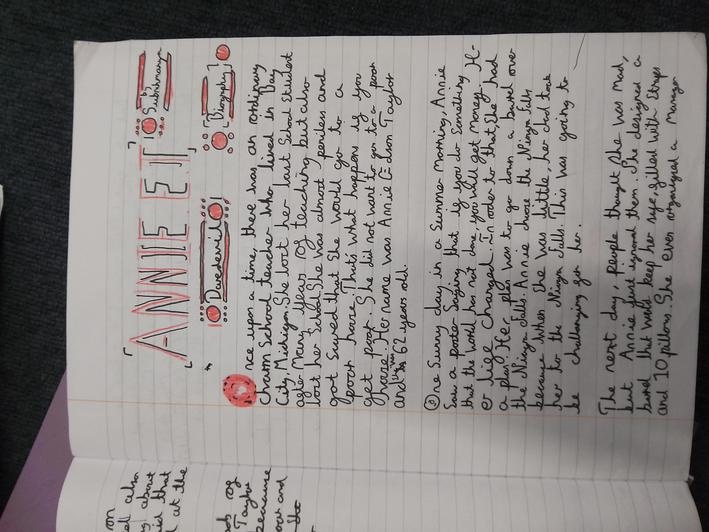 ANNIE ET
by
Subikhanya
Daredevil
Biography
Once upon a time, there was an ordinary
Charm School teacher who lived in Bay
City, Michigan. She lost her last School Student
after many years of teaching but also
lost her School. She was almost peniless and
got Scared that She would go to a
poor house. That's what happens if you
get poor. She did not want to go to a poor
house. Her name was Annie Edson Taylor
and 62 years old.
One Sunny day in a Summer Morning, Annie
Saw a poster Saying that if you do Something
that the world has not done, you will get money. H-
er life Changed. In order to that, She had
a plan. Her plan was to go down a barrel over
the Niagra Falls. Annie chose the Niagra Falls
because when she was little, her dad took
her to the Niagra Falls. This was going to
be challenging for her.
The next day, people thought She was mad,
but Annie just ignord them. She designed a
barrel that would keep her safe, filled with Straps
and 10 pillows. She even organised a manager